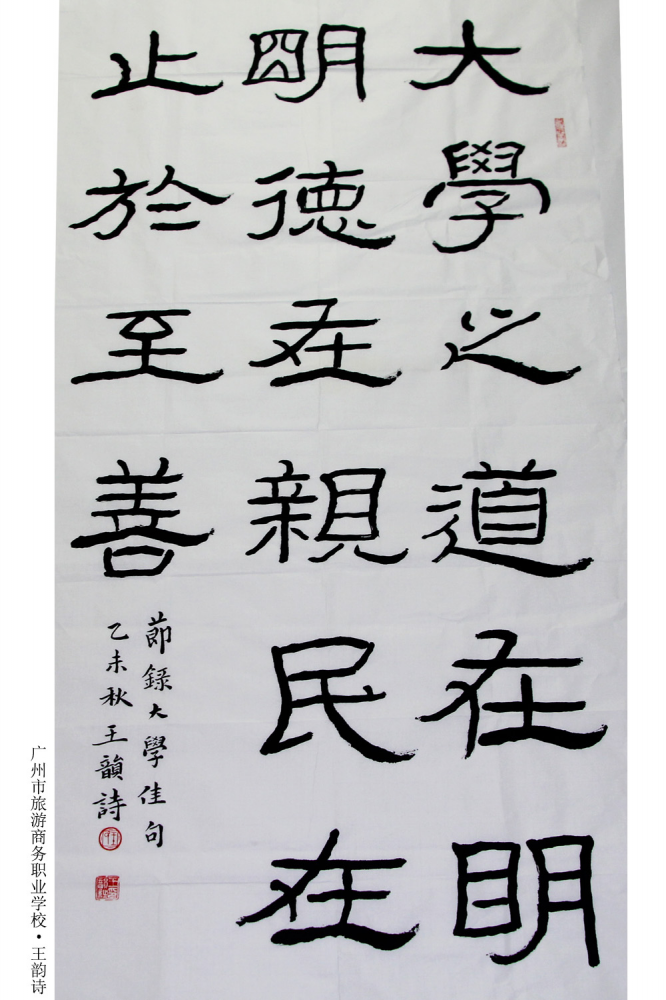 大學之道在明
明德在親民在
止於至善
節錄大學佳句
乙未秋王韻詩
广州市旅游商务职业学校•王韵诗